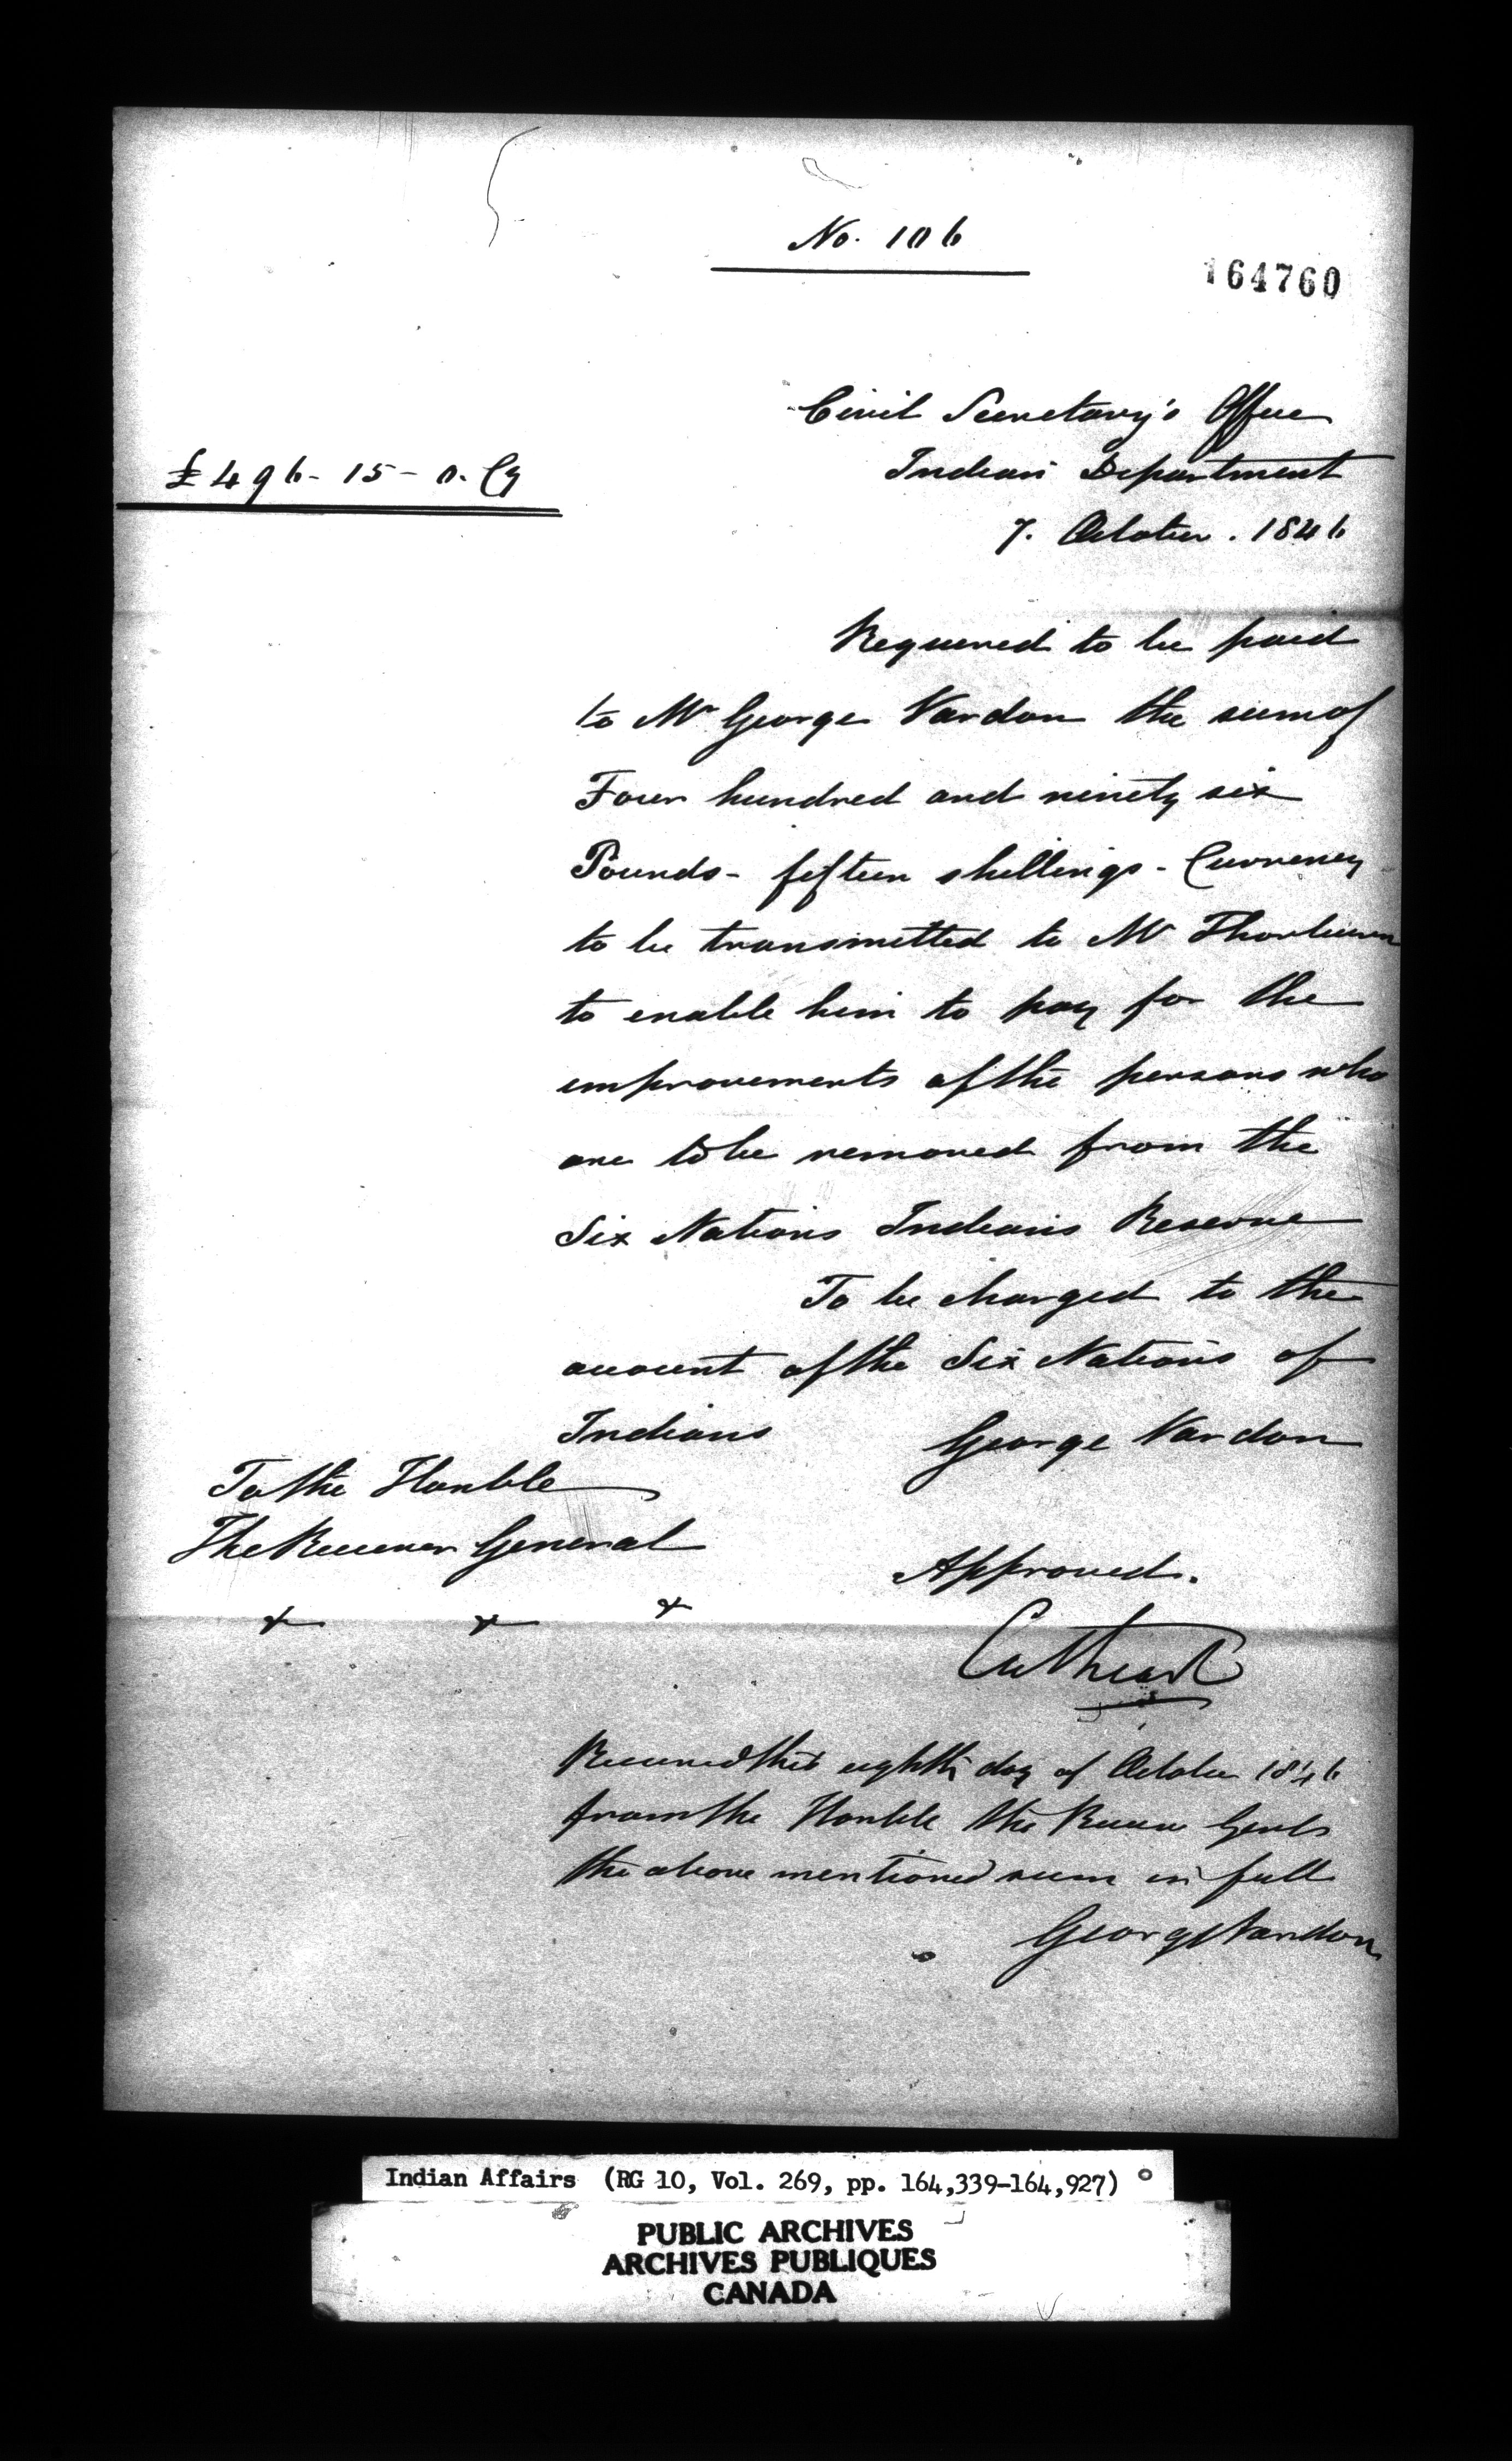 No. 106
164760
Civil Secretary's Office
Indian Department
£496-15-0. Cy
7. October. 1846
Required to be paid
to Mr George Vardon the sum of
Four hundred and ninety six
Pounds - fifteen shillings - Currency
to be transmitted to Mr Thorburn
to enable him to pay for the
improvements of the persons who
are to be removed from the
Six Nations Indians Reserve
To be charged to the
account of the Six Nations of
Indians
George Vardon
To the Honble
The Receiver General
Approved.
Cathcart
Received this eighth day of October 1846
from the Honble the Receiver Genl
the above mentioned sum in full
George Vardon
Indian Affairs (RG 10, Vol. 269, pp. 164,339-164,927)
PUBLIC ARCHIVES
ARCHIVES PUBLIQUES
CANADA